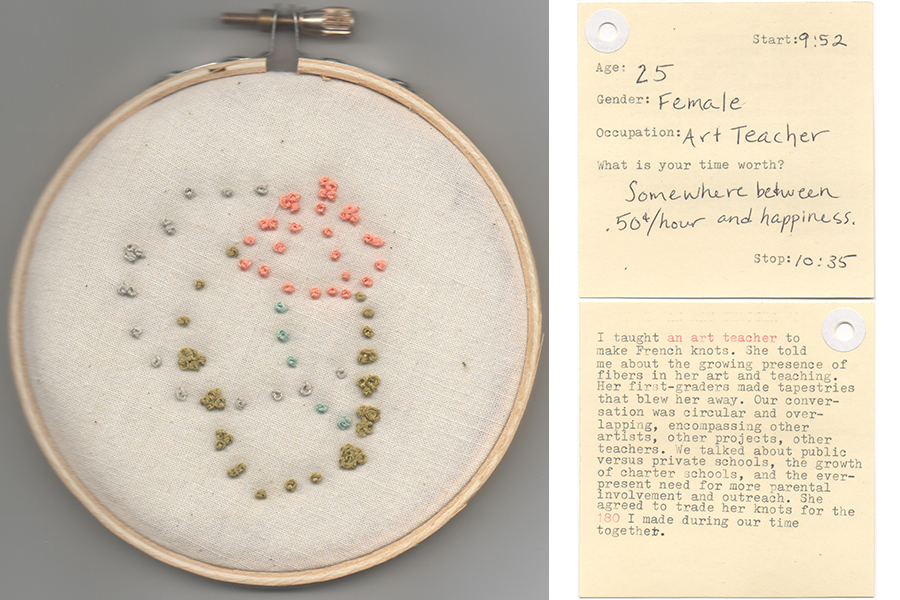 Start: 9:52
Age: 25
Gender: Female
Occupation: Art Teacher
What is your time worth?
Somewhere between
.50¢/hour and happiness.
Stop: 10:35
I taught an art teacher to
make French knots. She told
me about the growing presence of
fibers in her art and teaching.
Her first-graders made tapestries
that blew her away. Our conver-
sation was circular and over-
lapping, encompassing other
artists, other projects, other
teachers. We talked about public
versus private schools, the growth
of charter schools, and the ever-
present need for more parental
involvement and outreach. She
agreed to trade her knots for the
180 I made during our time
together.